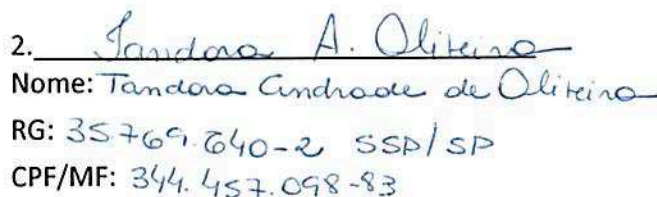 2. Tandora A. Oliveira
Nome: Tandora Andrade de Oliveira
RG: 35.769.640-2 SSP/SP
CPF/MF: 344.457.098-83